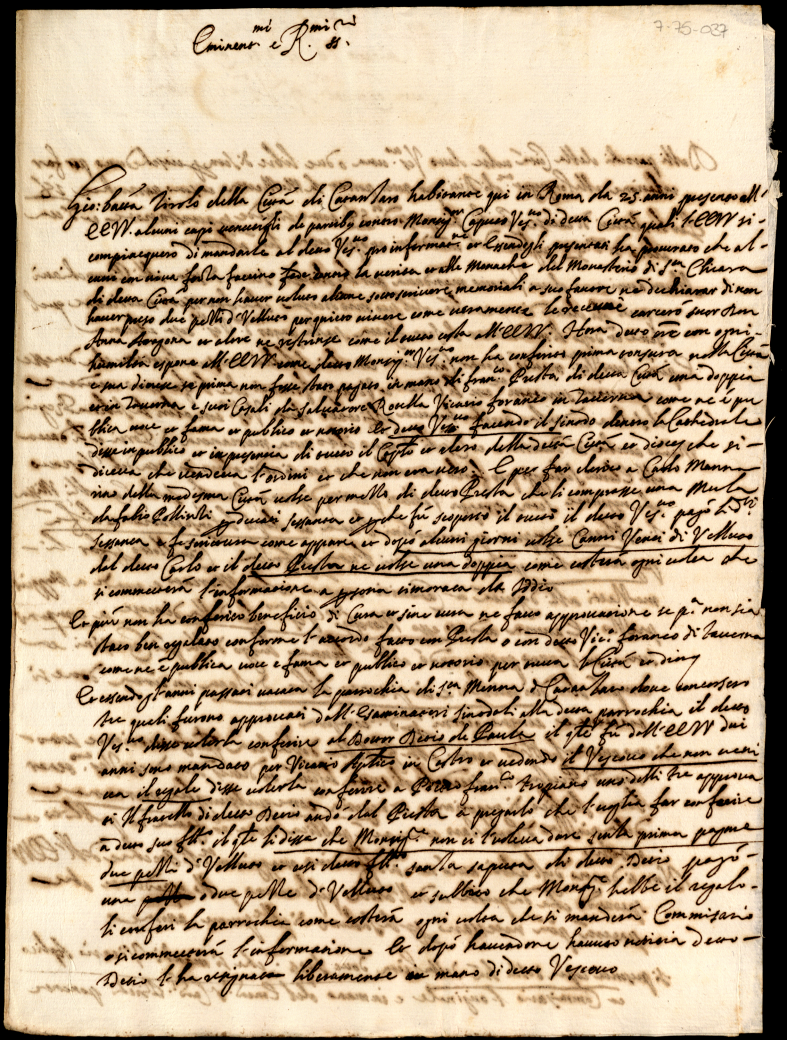 7-75-037
Eminent.mi e R.mi SS.ri
Gio: batta Tirolo della Città di Catanzaro habitante qui in Roma da 25. anni presentò all'
EEVV. alcuni capi contro Monsig.re Vescovo di detta Città quali l'EEVV si
compiacquero di mandarle al detto Ves.vo pro informat.ne et essendogli presentati ha procurato che al-
cuni con nova facessero la verità et alle Monache del Monasterio di S.ta Chiara
di detta Città per non haver voluto alcune sottoscrivere memoriali a suo favore ne dechiarar di non
haver preso due pezzi di Velluto per quieto vivere come veramente carcerò suor Don
Anna Aragona et altre ne restrinse come il tutto costa all'EEVV. Hora detto ore con ogni
humiltà espone all'EEVV come detto Monsig.re Ves.vo non ha conferito prima tonsura nella Città
e sua diocese se prima non fosse stato pagato in mano di fran.co Pristà di detta Città una doppia
et in Taverna e suoi Casali da Salvatore Rotella Vicario foraneo in Taverna come ne è pu-
blica voce et fama et publico et notorio et detto Ves.vo facendo il sinodo dentro la Cathedrale
disse in publico et in presenza di tutto il Cap.lo et clero della detta Città et diocese che si
diceva che vendeva l'ordini et che non era vero. E per far clerico a Carlo Manna-
rino della medesma Città volse per mezzo di detto Pristà che li comprasse una Mula
da fabio per docati sessanta et perche fù scoperto il tutto il detto Ves.vo pagò li d.ti
sessanta come appare et dopo alcuni giorni volse Canni Venti di Velluto
dal detto Carlo et il detto Pristà ne volse una doppia come costerà ogni volta che
si commetterà l'informatione a persona timorata da Iddio
Et più non ha conferito beneficio di Cura et sine cura ne fatto approvatione se p.a non sia
stato ben regalato conforme l'accordo fatto con Pristà o con detto Vic.o foraneo di Taverna
come ne è publica voce e fama et publico et notorio per tutta la Città et dioc.
Et essendo gl'anni passati vacata la parrochia di S.ta Menna di Catanzaro dove concorsero
tre quali furono approvati dall'Esaminatori sinodali alla detta parrochia il detto
Ves.vo disse volerla conferire al Dottor Detio de Paula il q.le fù dall'EEVV dui
anni sono mandato per Vicario Ap.lico in Castro et vedendo il Vescovo che non veni-
va il regalo disse volerla conferire a fran.co Tropiano uno delli tre approva-
ti Il fratello di detto Detio andò dal Pristà a pregarlo che l'voglia far conferire
a detto suo fr.llo il q.le li disse che Monsig.re non ci l'voleva dare senza prima pagare
due pezzi di Velluto et così detto fr.llo senza saputa di detto Detio pagò-
una o due pezze di Velluto et subbito che Monsig.re hebbe il regalo-
li conferì la parrochia come costerà ogni volta che si manderà Commissario
o si commetterà l'informatione Et dopò havendone havuto notitia detto-
Detio l'ha resignata liberamente in mano di detto Vescovo